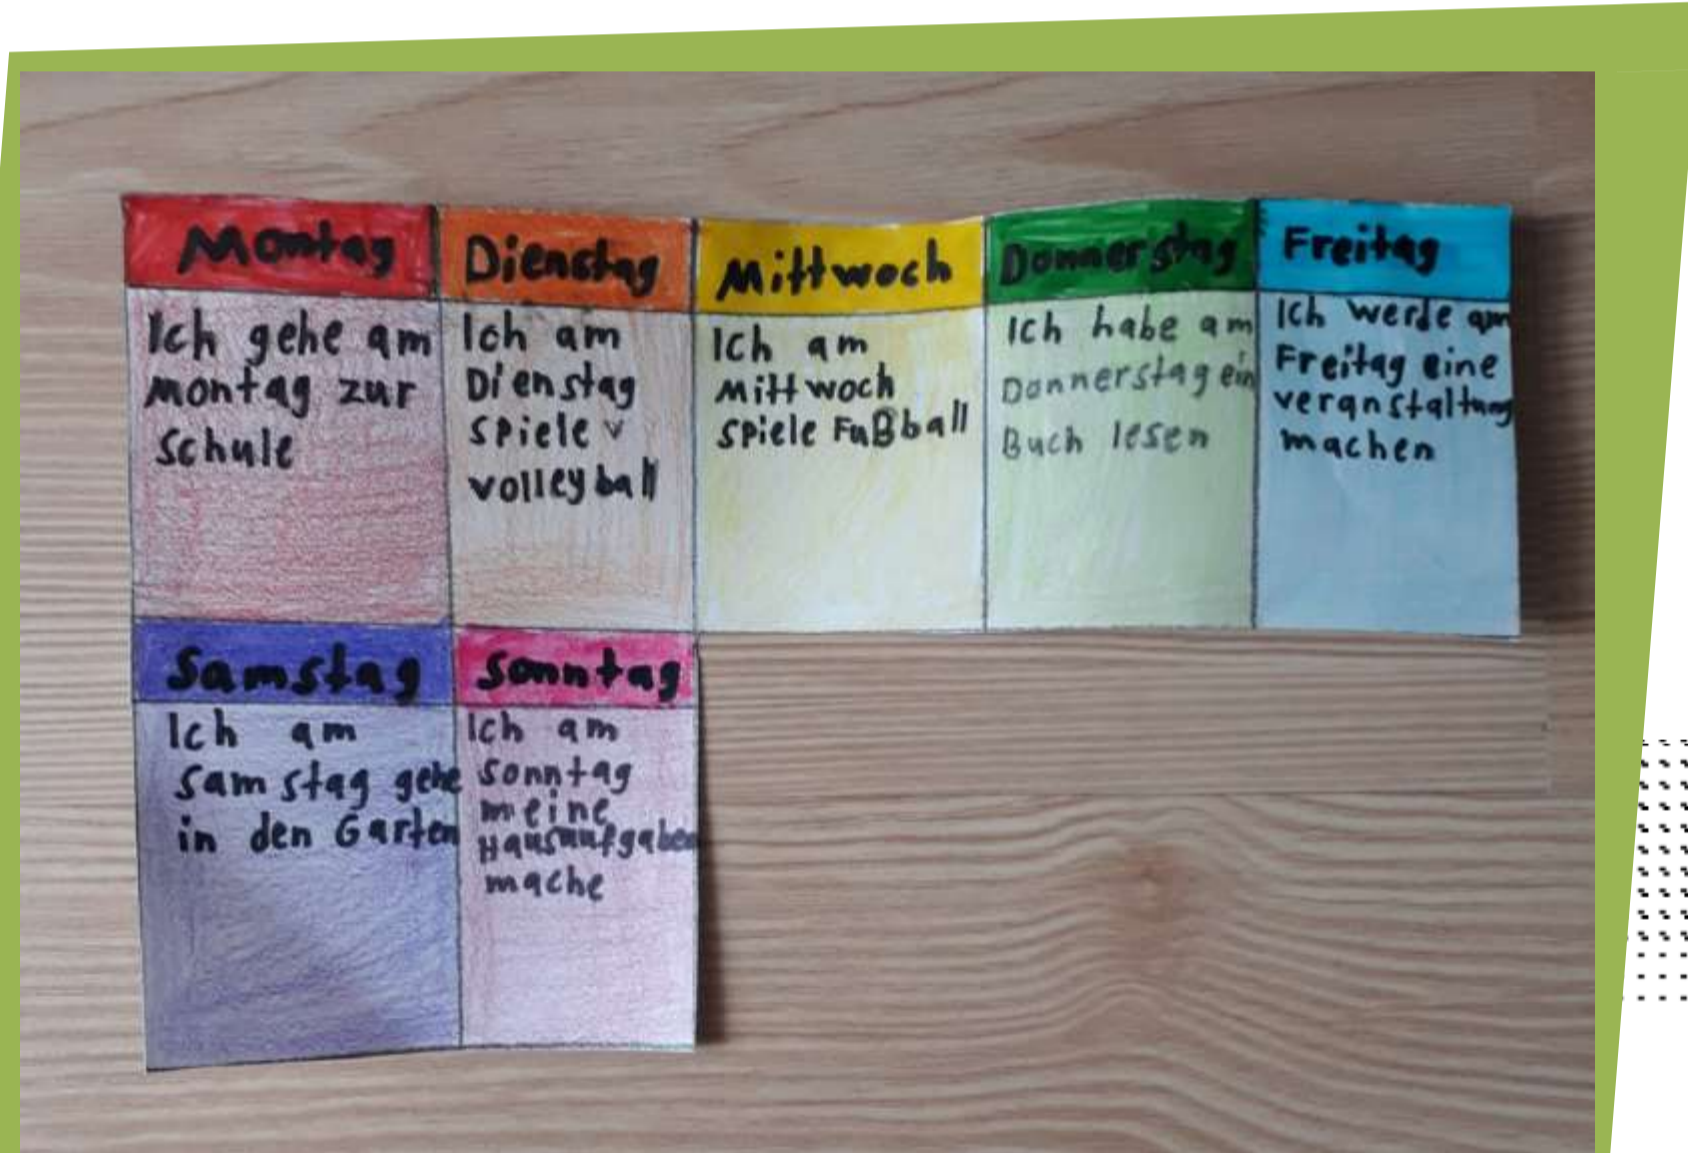 Montag
Ich gehe am
montag zur
schule
Dienstag
Ich am
Dienstag
spiele v
volleyball
Mittwoch
Ich am
Mittwoch
spiele Fußball
Donnerstag
Ich habe am
Donnerstag ein
Buch lesen
Freitag
Ich werde am
Freitag eine
veranstaltung
machen
Samstag
Ich am
Samstag gehe
in den Garten
Sonntag
Ich am
sonntag
meine
Hausaufgaben
mache